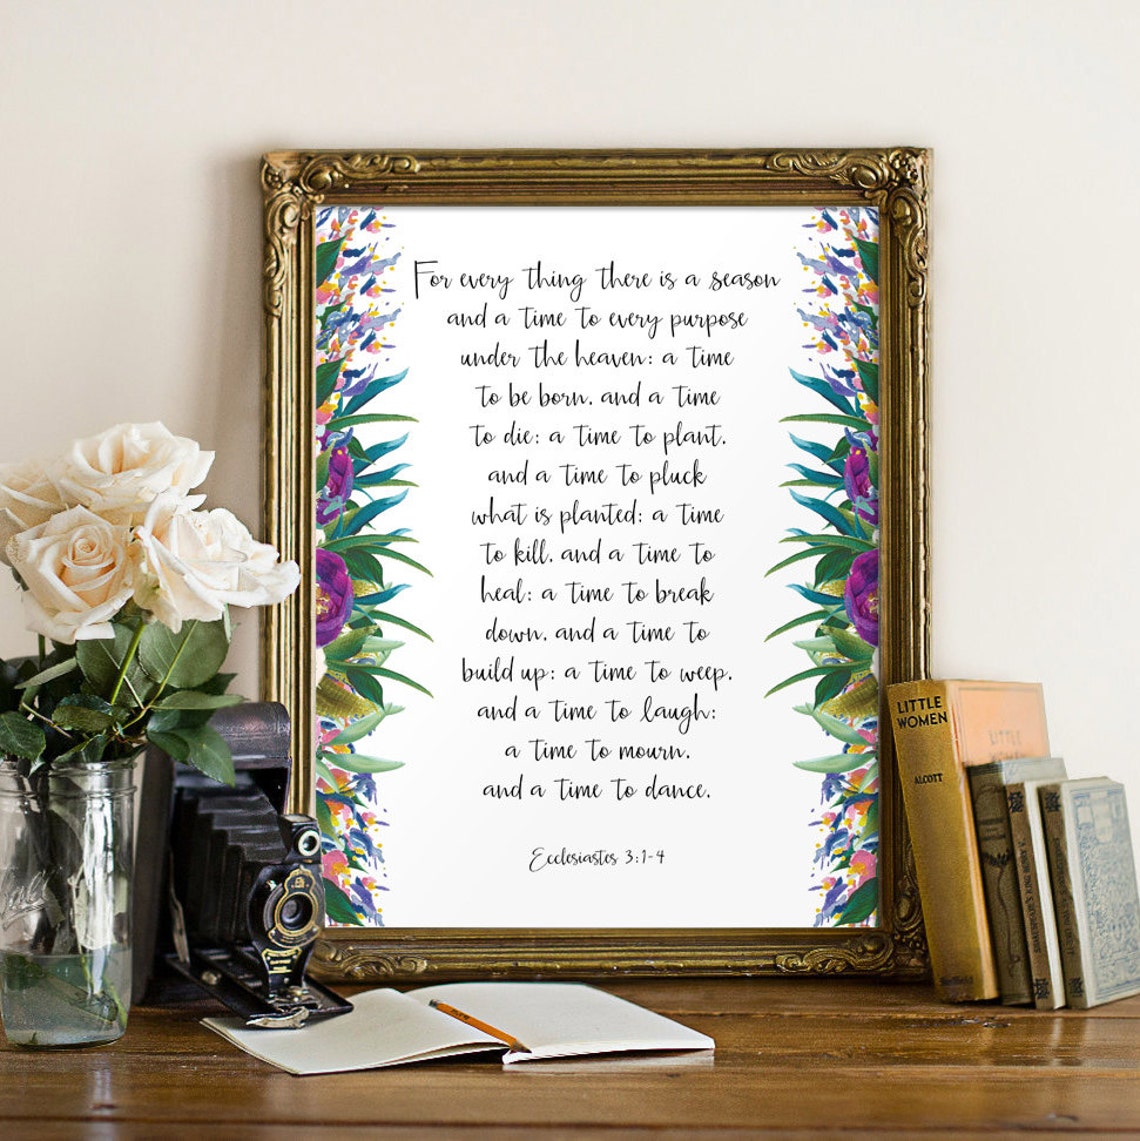 For every thing there is a season
and a time to every purpose
under the heaven: a time
to be born, and a time
to die: a time to plant,
and a time to pluck
what is planted: a time
to kill, and a time to
heal: a time to break
down, and a time to
build up: a time to weep,
and a time to laugh:
a time to mourn,
and a time to dance.
Ecclesiastes 3:1-4
LITTLE
WOMEN
ALCOTT
LITTLE
WOMEN
Ball